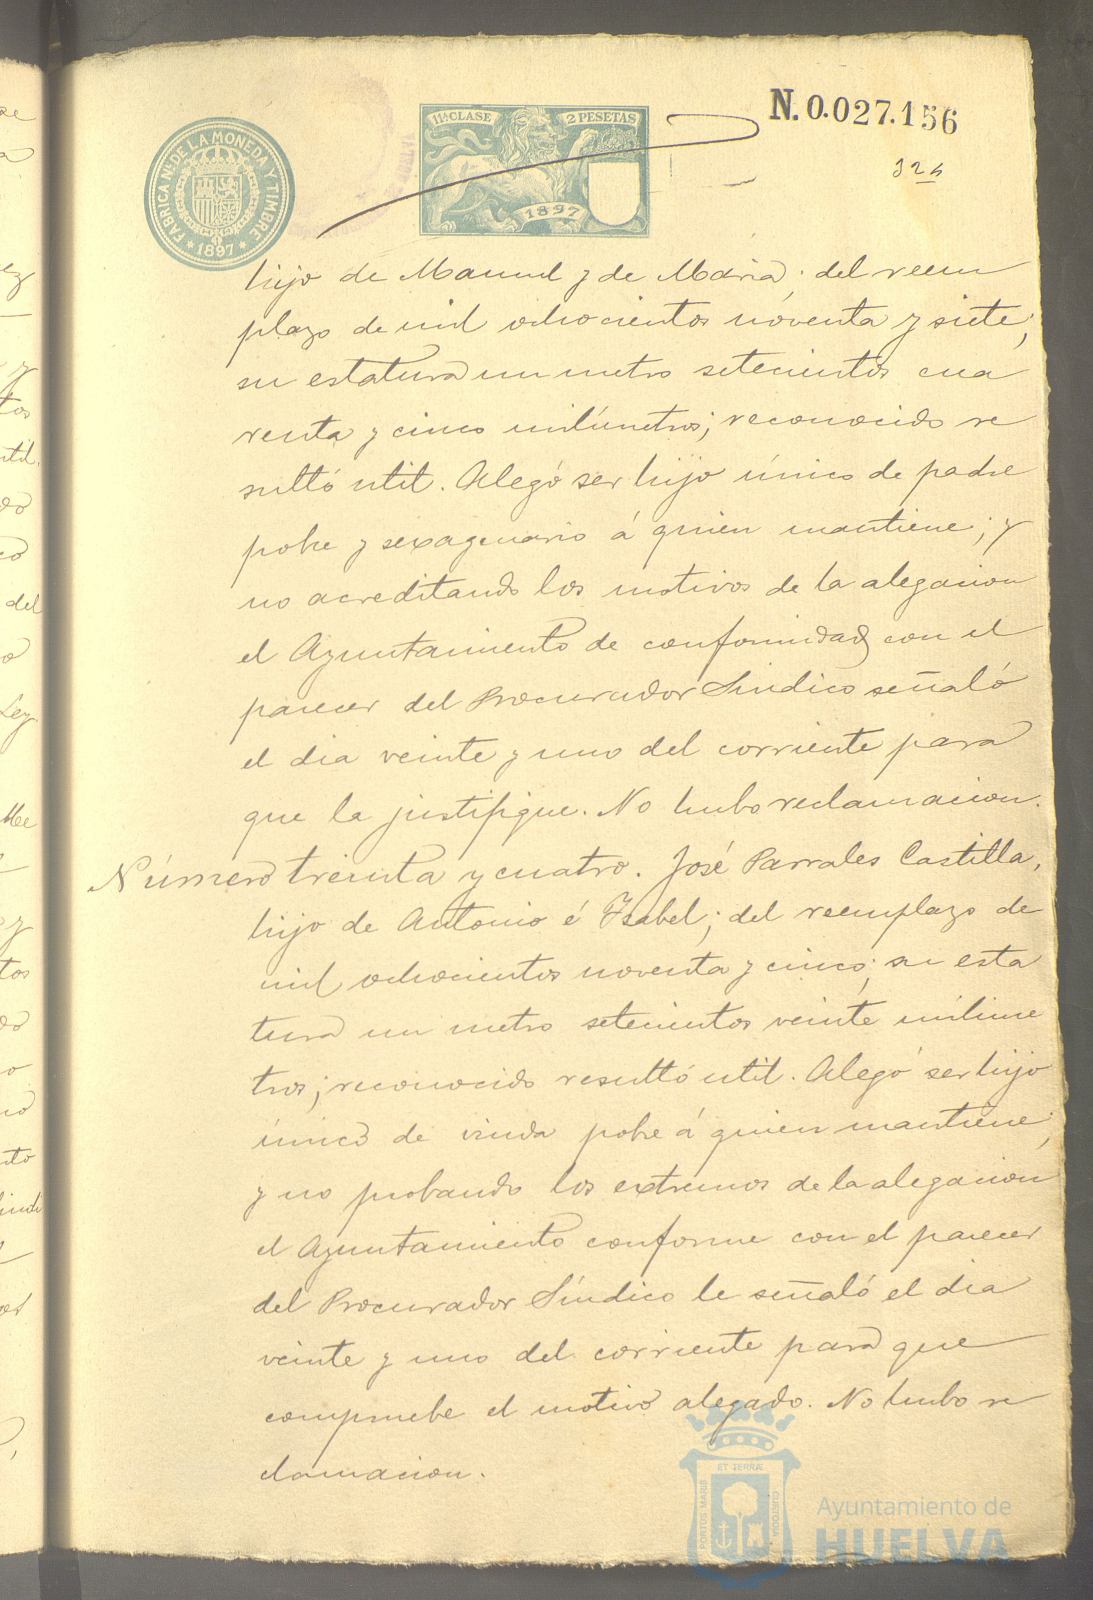 FABRICA NAL. DE LA MONEDA Y TIMBRE
* 1897 *
11ª CLASE
2 PESETAS
1897
N. 0.027.156
hijo de Manuel y de Maria; del reem
plazo de mil ochocientos noventa y siete;
su estatura un metro setecientos cua
renta y cinco milímetros; reconocido re
sultó util. Alegó ser hijo único de padre
pobre y sexagenario á quien mantiene; y
no acreditando los motivos de la alegacion
el Ayuntamiento de conformidad con el
parecer del Procurador Sindico señaló
el dia veinte y uno del corriente para
que la justifique. No hubo reclamacion.
Número treinta y cuatro. José Parrales Castilla,
hijo de Antonio é Isabel; del reemplazo de
mil ochocientos noventa y cinco; su esta
tura un metro setecientos veinte milime
tros; reconocido resultó util. Alegó ser hijo
único de viuda pobre á quien mantiene;
y no probando los extremos de la alegacion
el Ayuntamiento conforme con el parecer
del Procurador Síndico le señaló el dia
veinte y uno del corriente para que
compruebe el motivo alegado. No hubo re
clamacion.
PORTUS MARIS ET TERRÆ CUSTODIA
Ayuntamiento de
HUELVA